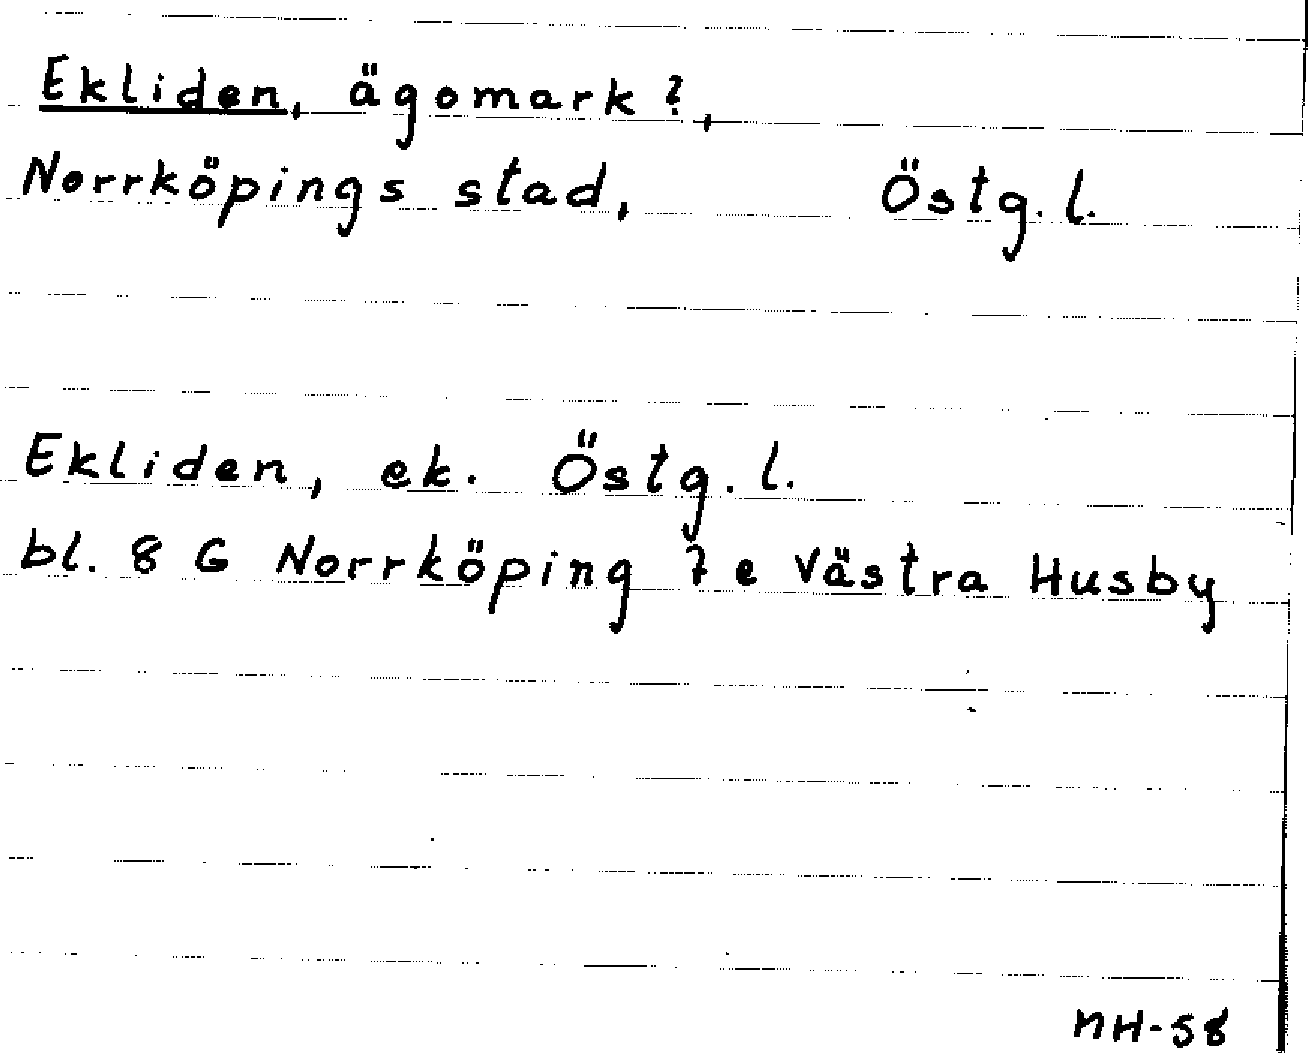 Ekliden, ägomark?,
Norrköpings stad, Östg. l.
Ekliden, ek. Östg. l.
bl. 8 G Norrköping 7 e Västra Husby
NH-58